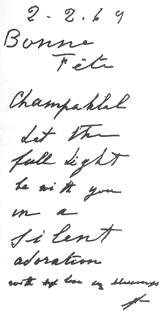 2-2.69
Bonne
Fête
Champaklal
Let the
full Light
be with you
in a
silent
adoration
with love